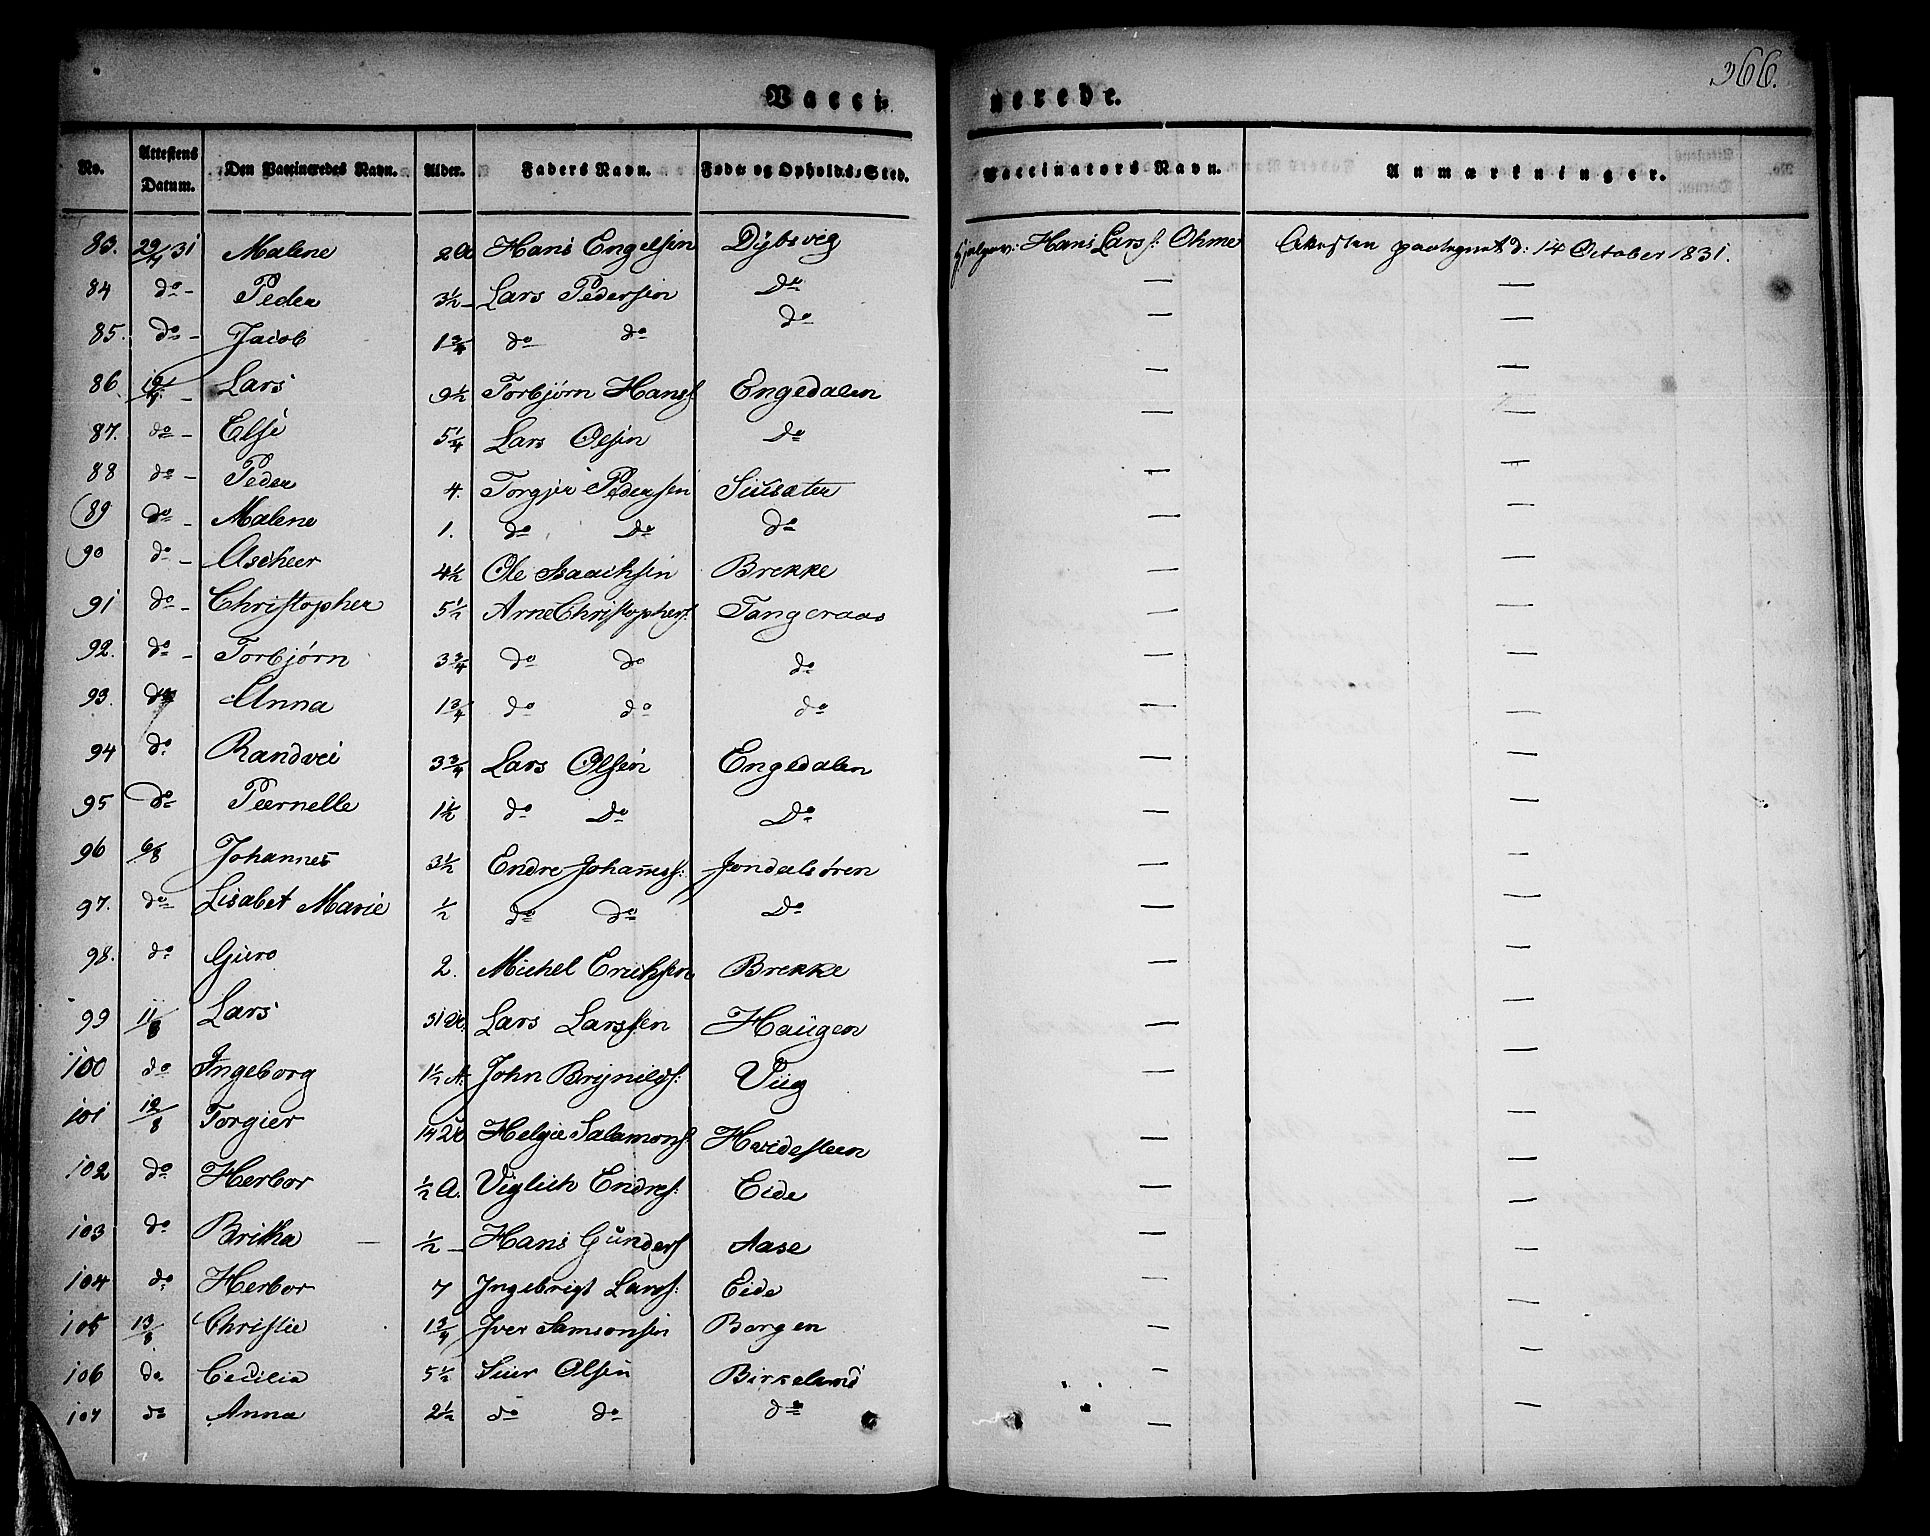 366.
Vacci- nerede.
No. Attestens Datum. Den Vaccineredes Navn. Alder. Faders Navn. Føde og Opholds-Sted. Vaccinators Navn. Anmærkninger.
83. 29/7 31 Malene 2 A Hans Engelsen Dybsvig Hans Larss: Ohme Attesten paategnet d: 14 October 1831.
84 do - Peder 3½ - Lars Pedersen Do — —
85. do - Jacob 1¾ do do do — —
86. Lars 9½ Torbjørn Hanss Engedalen — —
87. do - Else 5¼ Lars Olsen Do — —
88 do - Peder 4. Torgjer Pedersen Siusæter — —
89 do - Malene 1. do Do do — —
90 do - Ascheer 4½ Ole Isaachsen Brekke — —
91 do - Christopher 5½ Arne Christophers: Tangeraas — —
92. do - Torbjørn 3¾ do do do — —
93. do Anna 1¾ do do do — —
94 do Randvei 3¾ Lars Olsen Engedalen — —
95 do Peernelle 1½ do Do Do — —
96 6/8 Johannes 3½ Endre Johanness: Jondalsøren — —
97. do Lisabet Marie ½ do Do Do — —
98. do Guro 2. Michel Erichsen Brekke — —
99 11/8 Lars 31 Lars Larssen Haugen — —
100 do Ingeborg 1½ A. John Brynilds: Viig — —
101 12/8 Torgier 14 Helgie Salamons: Hvidesteen — —
102 do Herbor ½ A. Viglich Endres: Eide — —
103 do Britha — ½ - Hans Gunders Aase — —
104 do Herbor 7 Ingebrigt Larss: Eide — —
105 13/8 Christie 1¾ Iver Samsonsen Borgen — —
106 do Cicilia 5½ Siur Olsen Birkeland — —
107 do Anna 2½ do do do — —